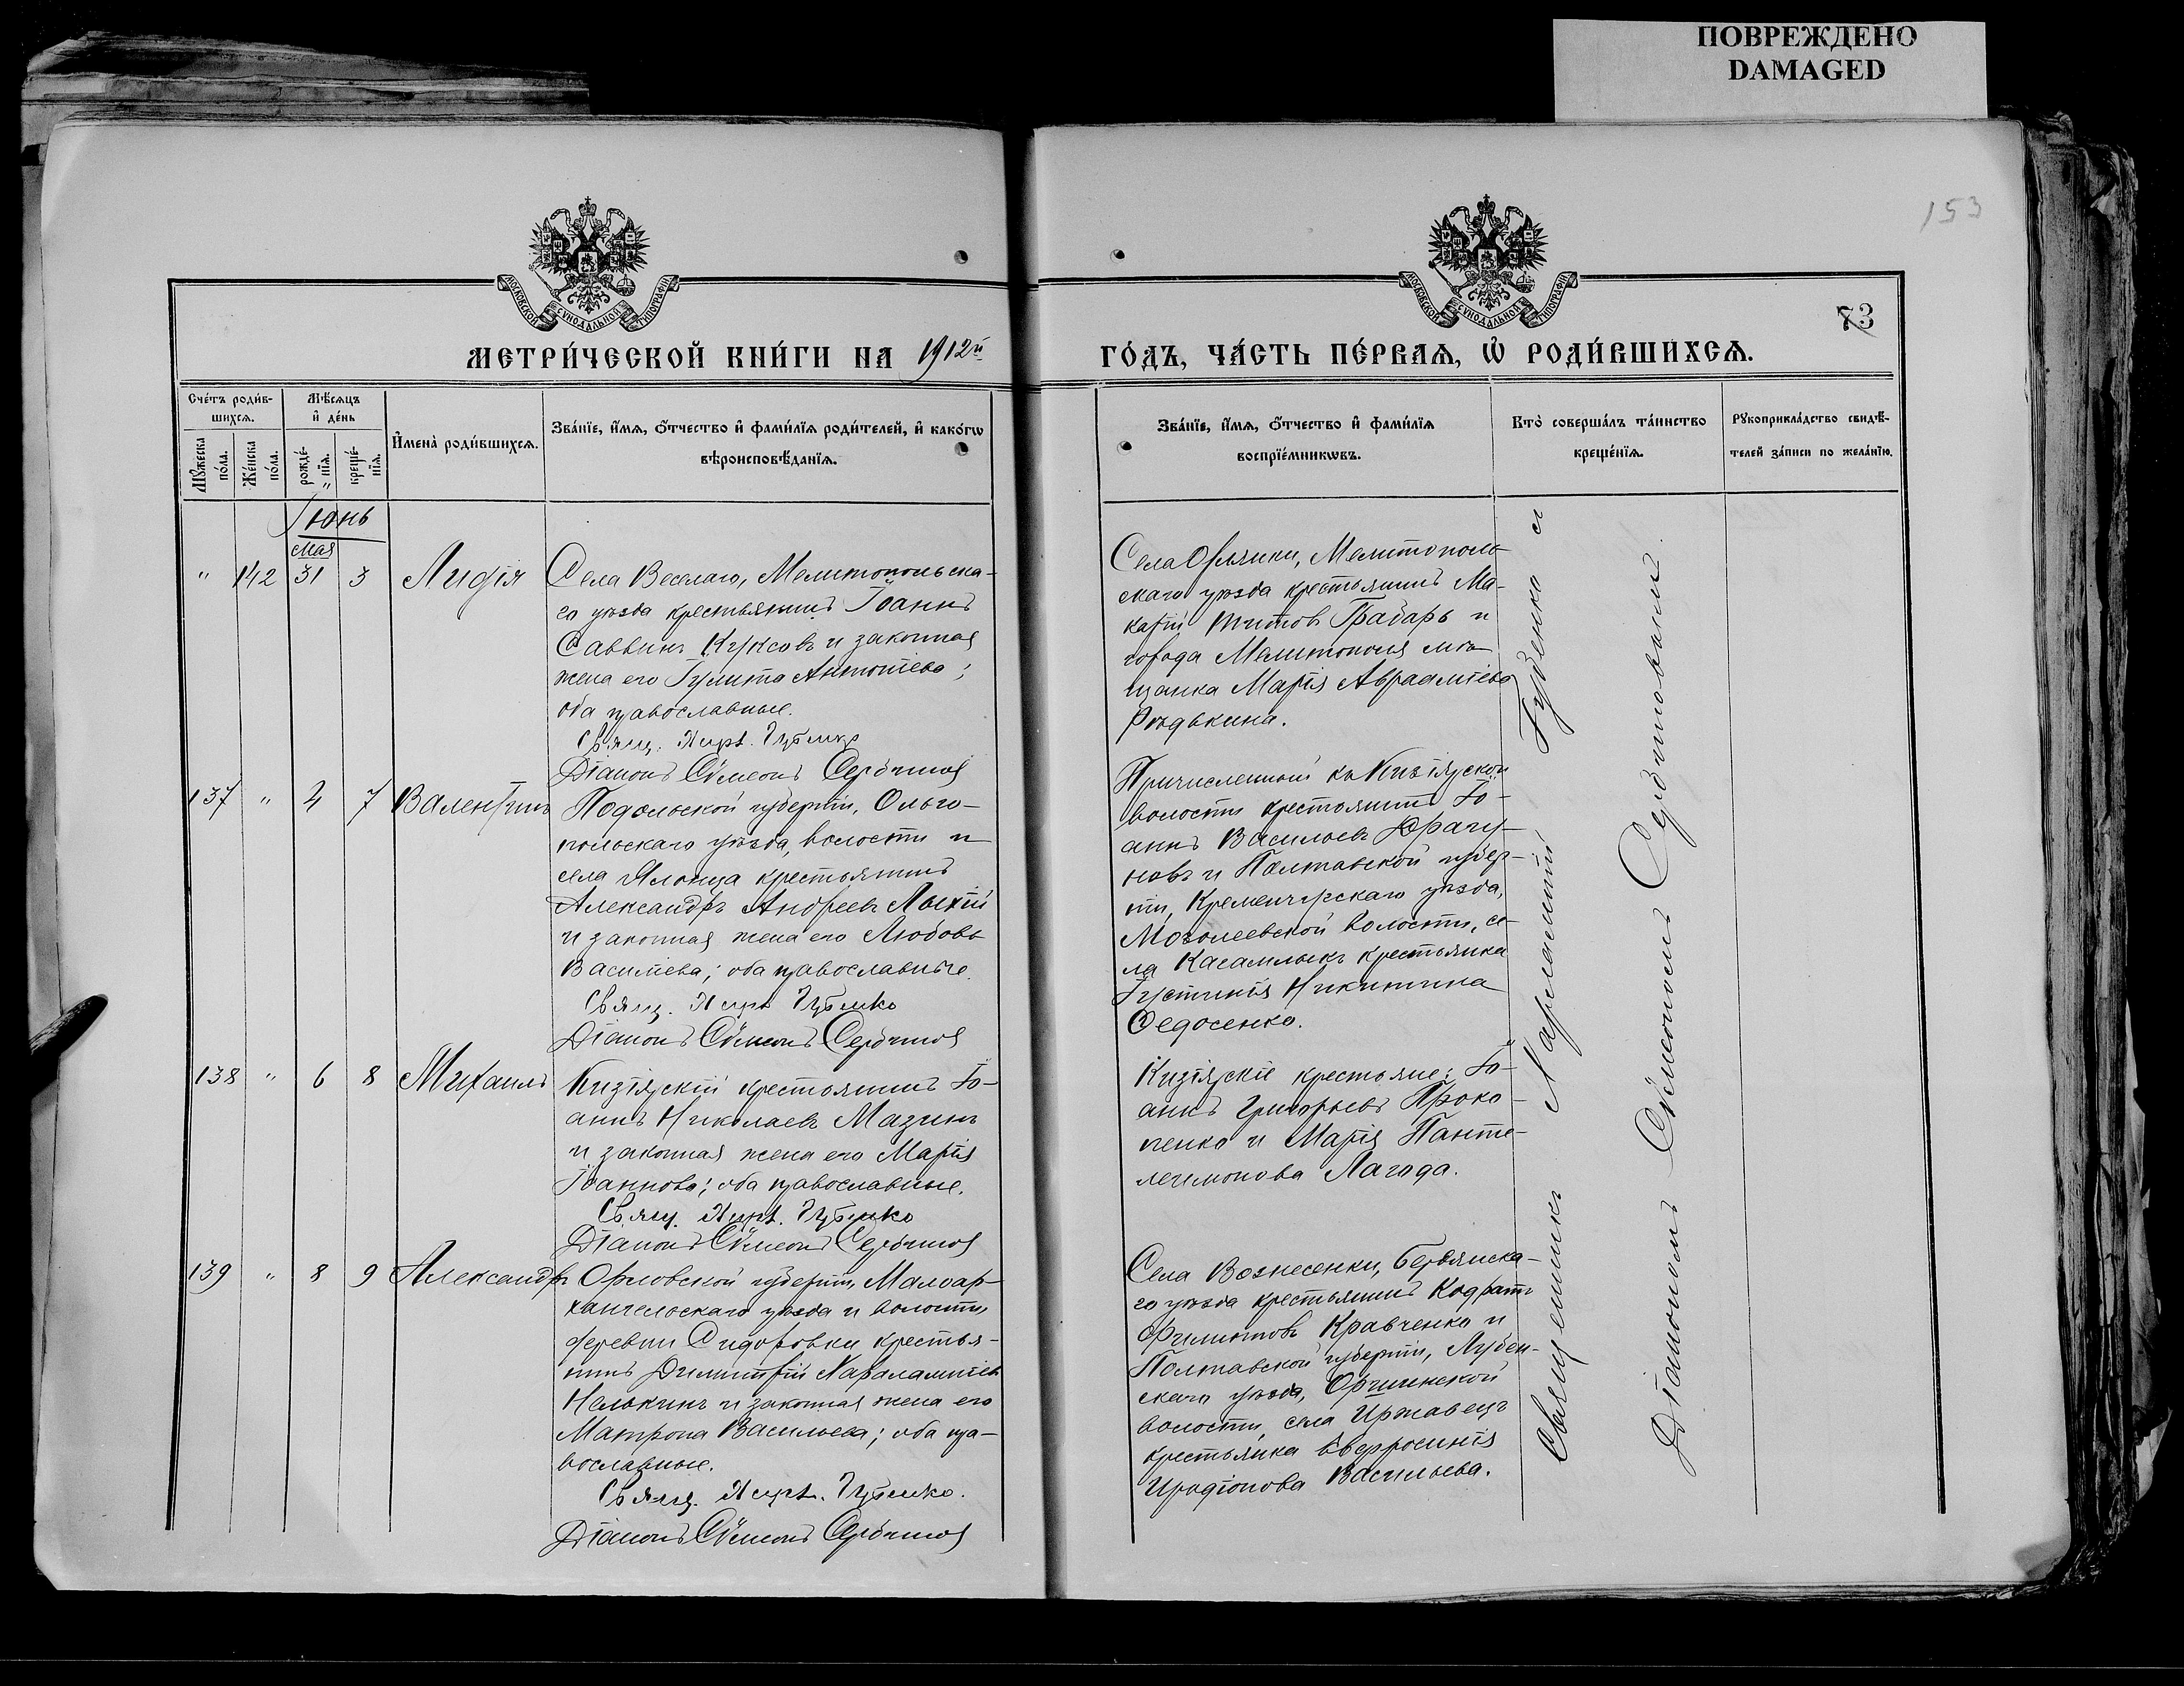 ПОВРЕЖДЕНО
DAMAGED
153
МОСКОВСКОЙ СѴНОДАЛЬНОЙ ТИПОГРАФІИ
МОСКОВСКОЙ СѴНОДАЛЬНОЙ ТИПОГРАФІИ
73
МЕТРИ́ЧЕСКОЙ КНИ́ГИ НА 1912й
ГО́ДЪ, ЧА́СТЬ ПЕ́РВАѦ, Ѡ РОДИ́ВШИХСѦ.
Сче́тъ роди́в-
шихсѧ.
Мѹжеска по́ла.
Же́нска по́ла.
Мѣ́сѧцъ
и де́нь
рожде́-
нїѧ.
креще́-
нїѧ.
И҆мена̀ роди́вшихсѧ.
Зва́нїе, и҆́мѧ, ѻ҆́тчество и҆ фами́лїѧ роди́телей, и҆ како́гѡ
вѣроисповѣ́данїѧ.
Зва́нїе, и҆́мѧ, ѻ҆́тчество и҆ фами́лїѧ
воспрїе́мникѡвъ.
Кто̀ соверша́лъ та́инство
креще́нїѧ.
Рѹкоприкла́дство свидѣ́-
телей за́писи по жела́нїю.
Іюнь
мая
" 142 31 3 Лидія
Села Веселаго, Мелитопольска-
го уѣзда крестьянинъ Іоаннъ
Саввинъ Куксовъ и законная
жена его Іулита Антоніева;
оба православные.
Свящ. Харл. Губенко
Діаконъ Сѵмеонъ
Села Орлянки, Мелитополь-
скаго уѣзда крестьянинъ Ма-
карій Титовъ Грабарь и
города Мелитополя мѣ-
щанка Марія Аврааміева
Рѣдькина.
137 " 4 7 Валентинъ
Подольской губерніи, Ольго-
польскаго уѣзда, волости и
села Яланца крестьянинъ
Александръ Андреевъ Лыхій
и законная жена его Любовь
Василіева; оба православные.
Свящ. Харл. Губенко
Діаконъ Сѵмеонъ
Причисленный къ Кизіярской
волости крестьянинъ Іо-
аннъ Васильевъ Драгу-
новъ и Полтавской губер-
ніи, Кременчугскаго уѣзда,
Мозолеевской волости, се-
ла крестьянка
Іустинія Никитина
Ѳедосенко.
138 " 6 8 Михаилъ
Кизіярскій крестьянинъ Іо-
аннъ Николаевъ Мазинъ
и законная жена его Марія
Іоаннова; оба православные.
Свящ. Харл. Губенко
Діаконъ Сѵмеонъ
Кизіярскіе крестьяне: Іо-
аннъ Григорьевъ Проко-
пенко и Марія Панте-
леимонова Лагода.
139 " 8 9 Александръ
Орловской губерніи, Малоар-
хангельскаго уѣзда и волости,
деревни Сидоровки крестья-
нинъ Димитрій Харалампіевъ
Нелюкинъ и законная жена его
Матрона Васильева; оба пра-
вославные.
Свящ. Харл. Губенко.
Діаконъ Сѵмеонъ
Села Вознесенки, Бердянска-
го уѣзда крестьянинъ Кодратъ
Филиповъ Кравченко и
Полтавской губерніи, Лубен-
скаго уѣзда, Оржинской
волости, села Иржавецъ
крестьянка Евфросинія
Иродіонова Васильева.
Священникъ Харлампій Губенко съ
Діакономъ Сѵмеономъ